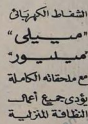 الشفاط الكهربائي
"ميلي"
"ميليور"
مع ملحقاته الكاملة
يؤدى جميع أعمال
النظافة المنزلية